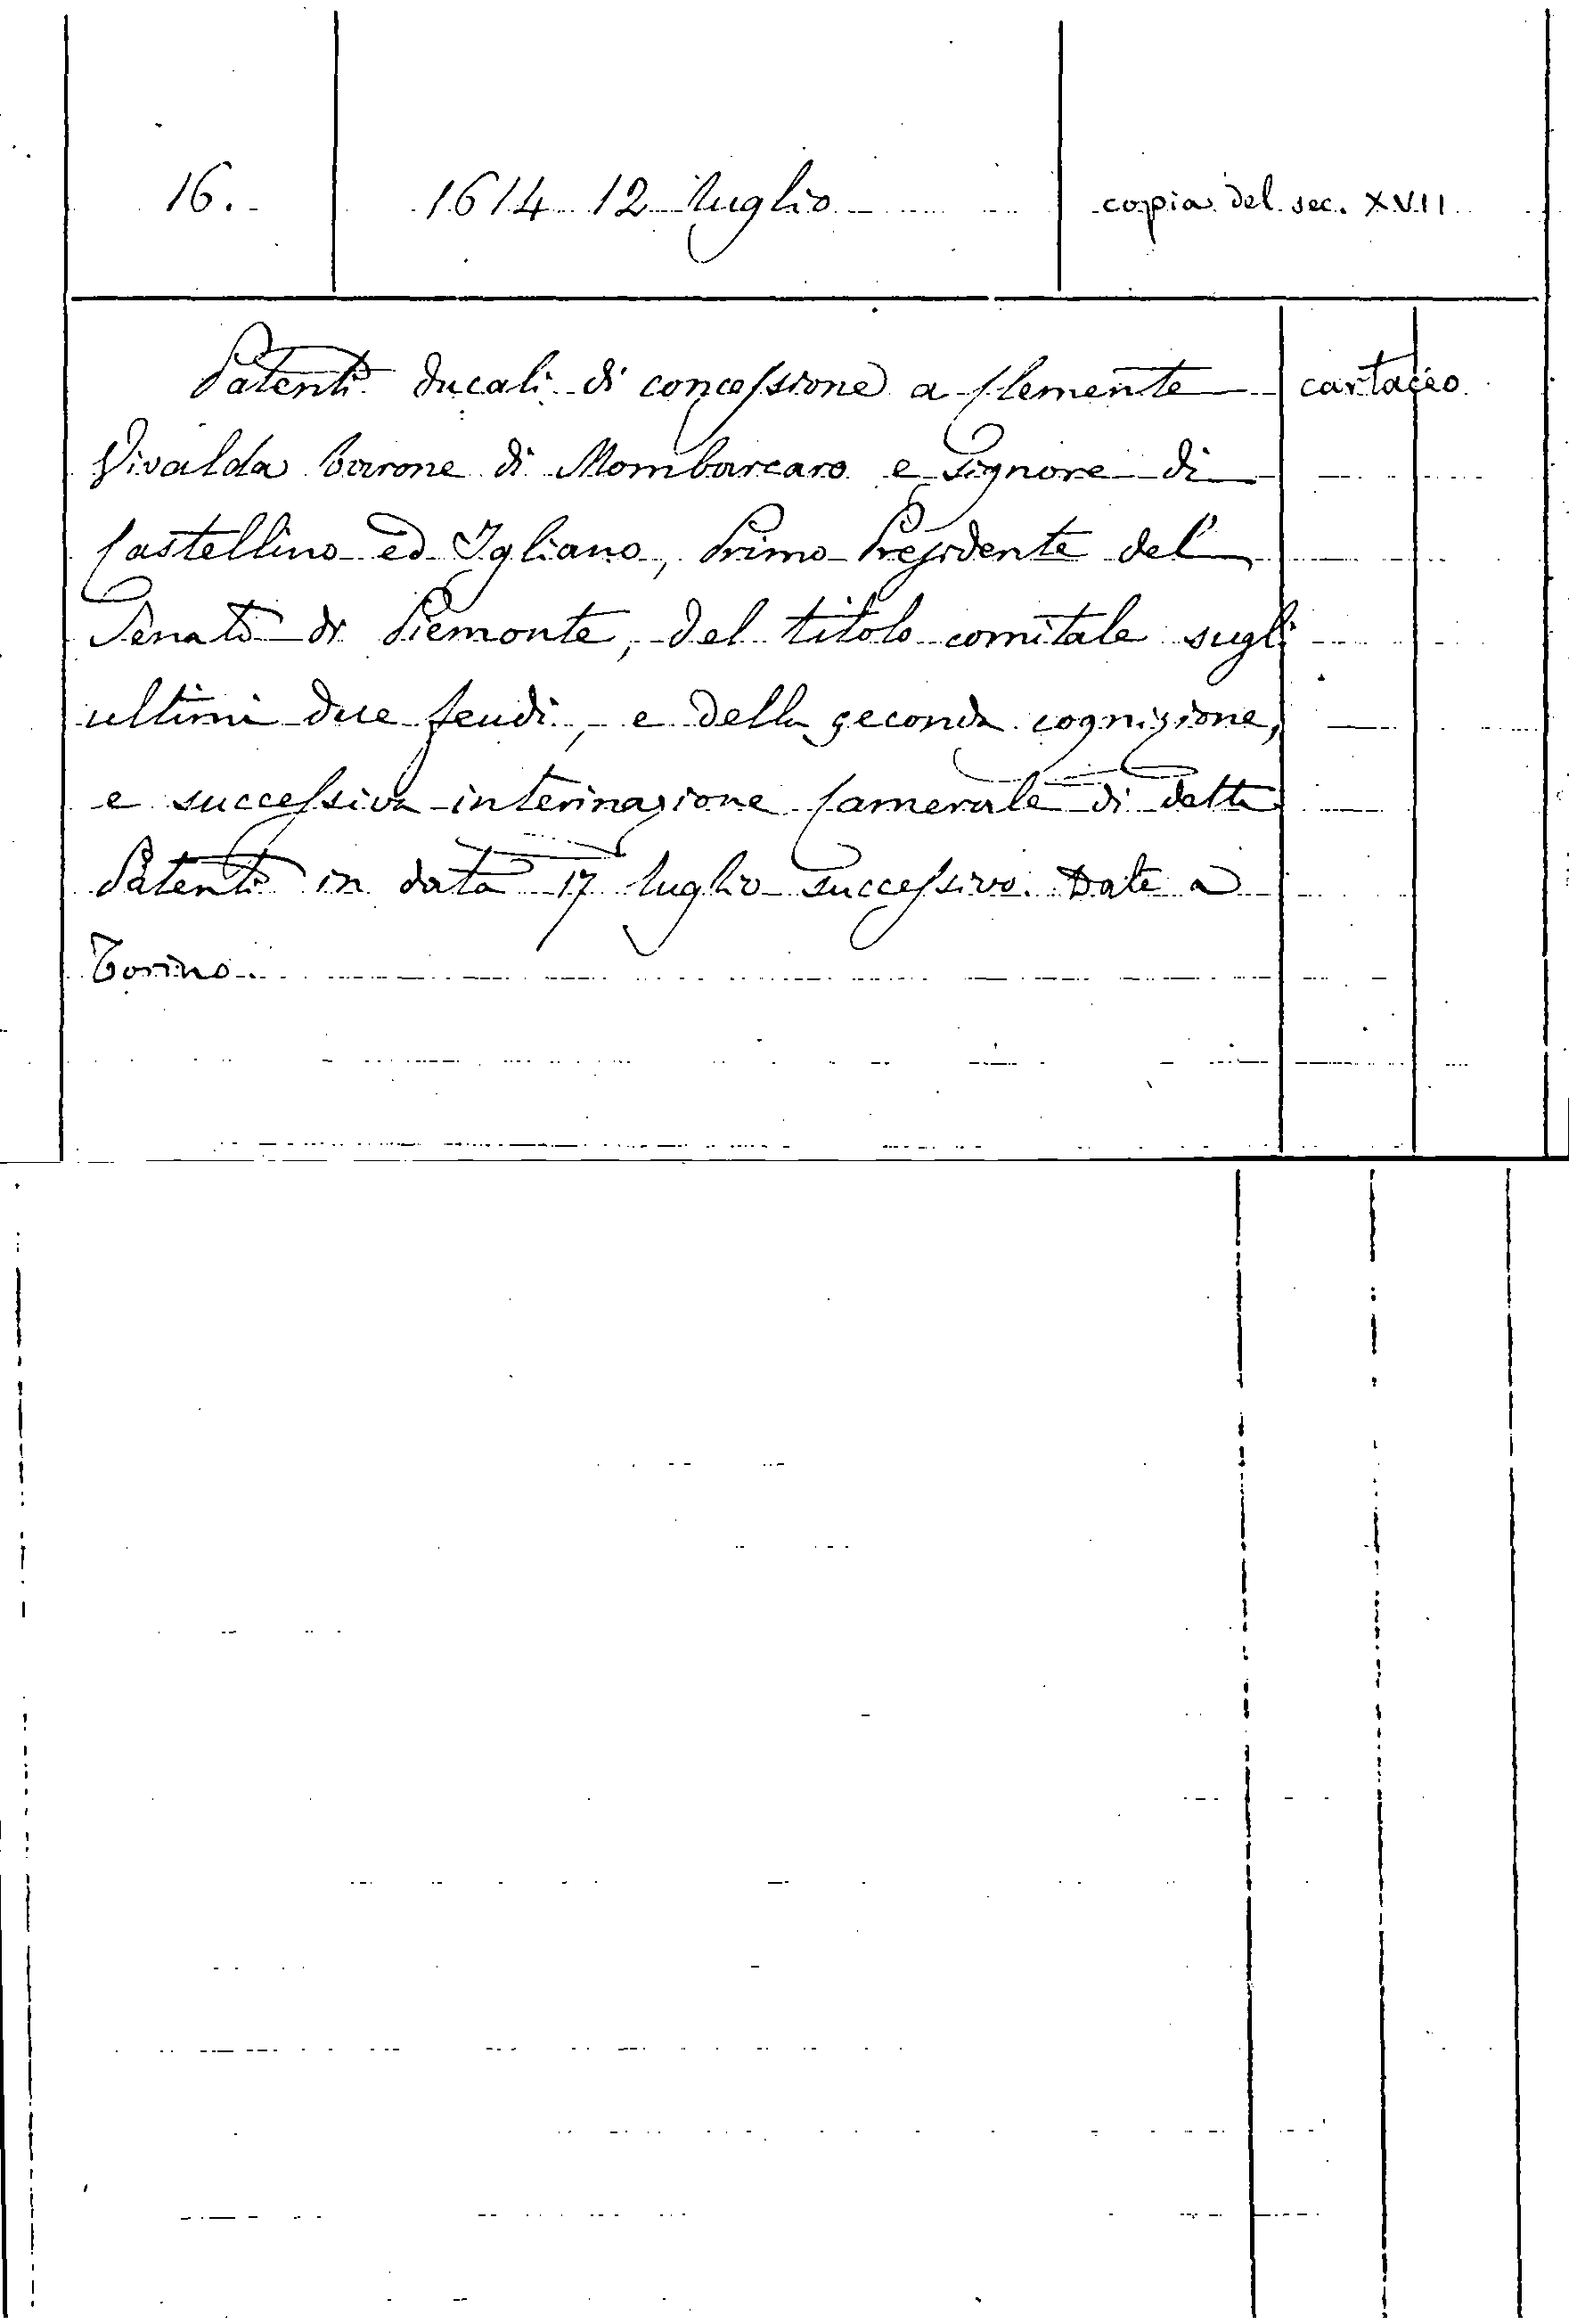 16. 1614 12 luglio copia del sec. XVII
Patenti ducali di concessione a Clemente cartaceo
Vivalda barone di Mombarcaro e Signore di
Castellino ed Igliano, Primo Presidente del
Senato di Piemonte, del titolo comitale sugli
ultimi due feudi, e della seconda cognizione,
e successiva interinazione Camerale di dette
Patenti in data 17 luglio successivo. Date a
Torino.